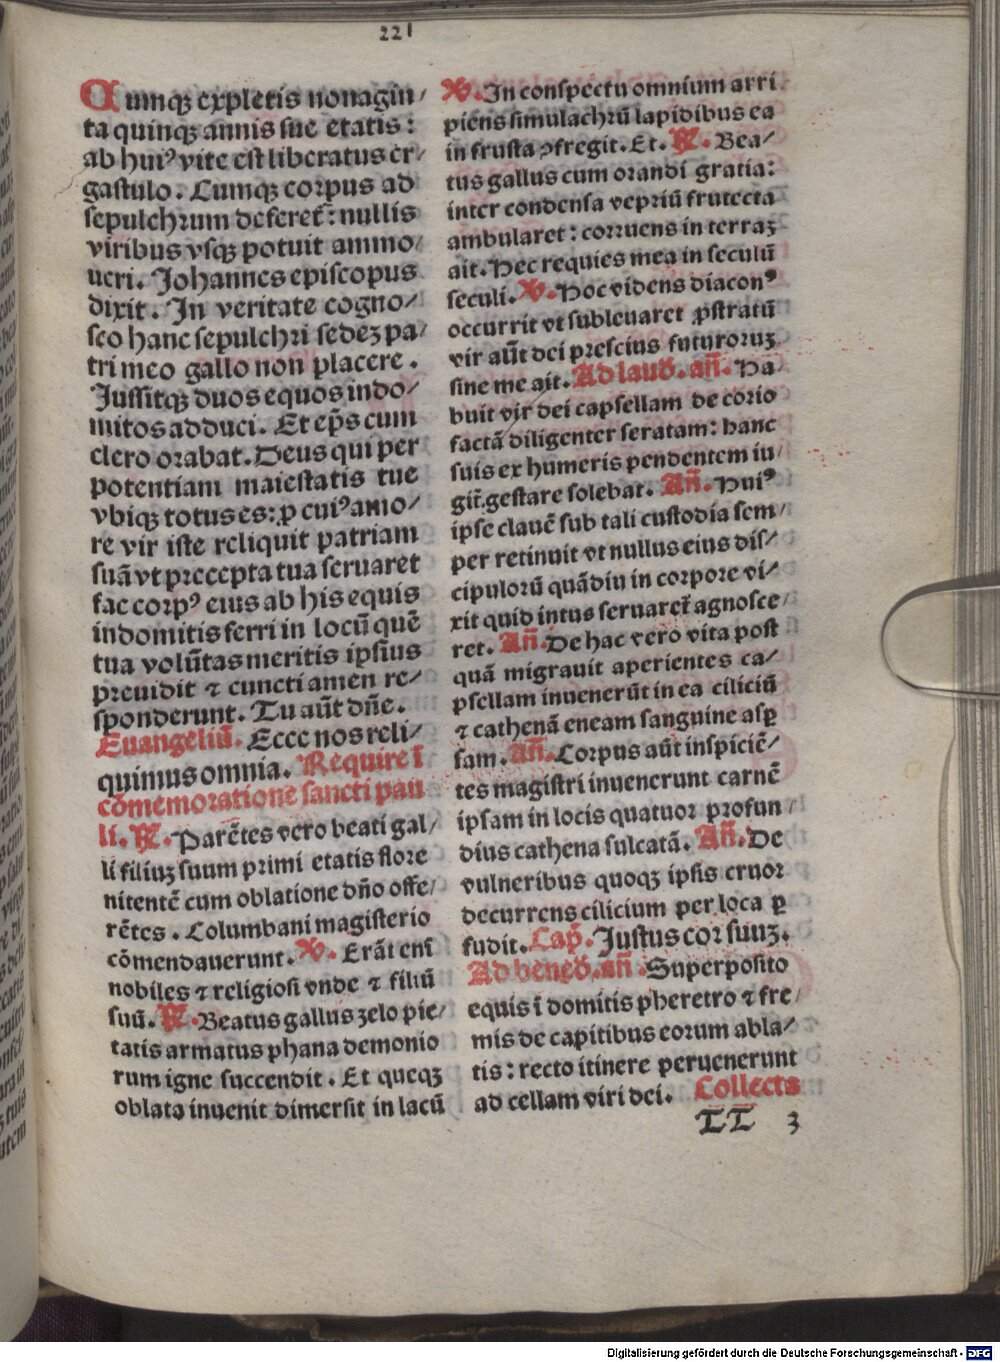 221
Cumqꝫ expletis nonagin/
ta quinqꝫ annis sue etatis:
ab huiꝰ vite est liberatus er/
gastulo. Cumqꝫ corpus ad
sepulchrum deferet̃: nullis
viribus vsqꝫ potuit ammo/
ueri. Johannes episcopus
dixit. In veritate cogno/
sco hanc sepulchri sedeꝫ pa/
tri meo gallo non placere.
Jussitqꝫ duos equos indo/
mitos adduci. Et ep̃s cum
clero orabat. Deus qui per
potentiam maiestatis tue
vbiqꝫ totus es: ꝓ cuiꝰ amo/
re vir iste reliquit patriam
suā vt precepta tua seruaret
fac corpꝰ eius ab his equis
indomitis ferri in locū quē
tua volūtas meritis ipsius
preuidit ⁊ cuncti amen re/
sponderunt. Tu aūt dñe.
Euangeliū. Ecce nos reli/
quimus omnia. Require ī
cōmemoratione sancti pau
li. ℟. Parētes vero beati gal/
li filiuꝫ suum primi etatis flore
nitentē cum oblatione dño offe/
rētes. Columbani magisterio
cōmendauerunt. ℣. Erāt enī
nobiles ⁊ religiosi vnde ⁊ filiū
suū. ℟. Beatus gallus zelo pie/
tatis armatus phana demonio
rum igne succendit. Et queqꝫ
oblata inuenit dimersit in lacū
℣. In conspectu omnium arri
piens simulachrū lapidibus ea
in frusta ꝯfregit. Et. ℟. Bea/
tus gallus cum orandi gratia:
inter condensa vepriū frutecta
ambularet: corruens in terraꝫ
ait. Hec requies mea in seculū
seculi. ℣. Hoc videns diaconꝰ
occurrit vt subleuaret ꝓstratū
vir aūt dei prescius futuroruꝫ
sine me ait. Ad laud̃. añ. Ha/
buit vir dei capsellam de corio
factā diligenter seratam: hanc
suis ex humeris pendentem iu/
git̃ gestare solebat. Añ. Huiꝰ
ipse clauē sub tali custodia sem/
per retinuit vt nullus eius dis/
cipulorū quādiu in corpore vi/
xit quid intus seruaret̃ agnosce/
ret. Añ. De hac vero vita post
quā migrauit aperientes ca/
psellam inuenerūt in ea ciliciū
⁊ cathenā eneam sanguine asꝑ
sam. Añ. Corpus aūt inspiciē/
tes magistri inuenerunt carnē
ipsam in locis quatuor profun/
dius cathena sulcatā. Añ. De
vulneribus quoqꝫ ipsis cruor
decurrens cilicium per loca ꝑ
fudit. Cap̃. Justus cor suuꝫ.
Ad bened̃. añ. Superposito
equis ī domitis pheretro ⁊ fre/
mis de capitibus eorum abla/
tis: recto itinere peruenerunt
ad cellam viri dei. Collecta
LL 3
Digitalisierung gefördert durch die Deutsche Forschungsgemeinschaft - DFG